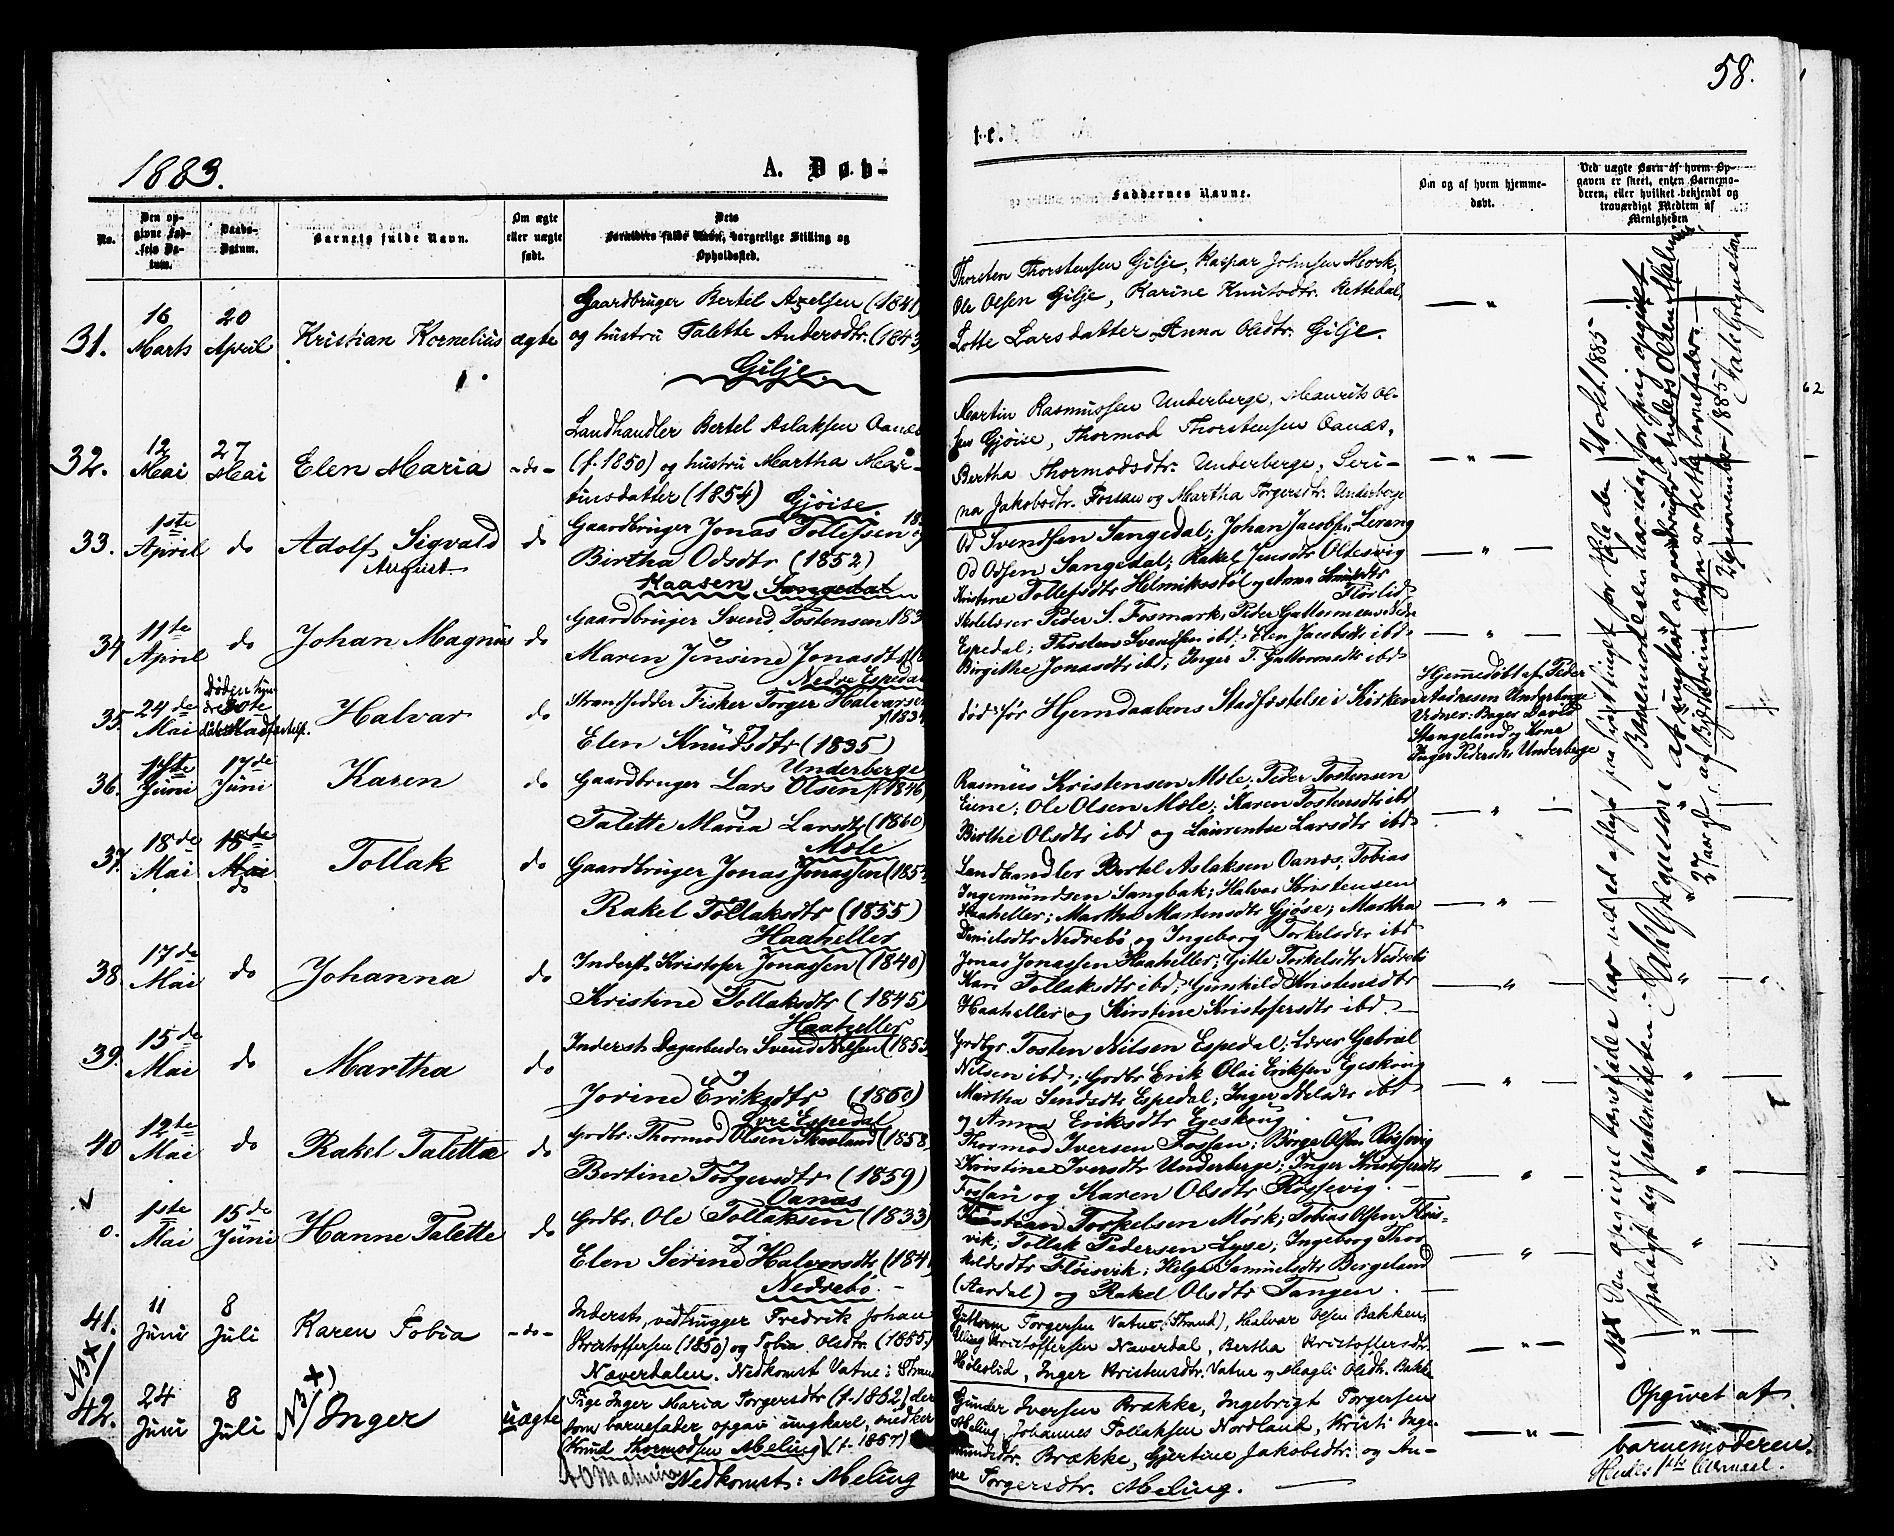 58.
1883.
A. Døb-
te.
No.
Den opgivne Fødsels Datum.
Daabs-Datum.
Barnets fulde Navn.
Om ægte eller uægte født.
Dets Forældres fulde Navn, borgerlige Stilling og Opholdssted.
Faddernes Navne.
Om og af hvem hjemmedøbt.
Ved uægte Børn af hvem Opgaven er skeet, enten Barnemoderen, eller hvilket bekjendt og troværdigt Medlem af Menigheden
31. 16 Marts 20 April Kristian Kornelius ægte
Gaardbruger Bertil Axelsen (1841)
og hustru Talette Andersdtr. (1843)
Gilje.
Thorsten Thorstensen Gilje, Kaspar Johnsen Mork,
Ole Olsen Gilje, Karine Knutsdtr. Rettedal,
Lotte Larsdatter, Anna Olsdtr. Gilje.
32. 12 Mai 27 Mai Elen Maria -do-
Landhandler Bertel Aslaksen Oanæs
(f. 1850) og hustru Martha Mar-
tinsdatter (1854) Gjøise.
Martin Rasmussen Underberge, Maurits Ol-
sen Gjøise, Thormod Thorstensen Oanæs,
Bertha Thormodsdtr. Underberge, Seri-
na Jakobsdtr. Fossan og Martha Torgersdtr. Underberge
33. 1ste April do Adolf Sigvald August do
Gaardbruger Jonas Tollefsen
Birtha Odsdtr (1852)
Haasen Sangedal
Od Svendsen Sangedal; Johan Jacobsen Levang
Od Odsen Sangedal; Rakel Jensdtr Oltesvig
Kristine Tollefsdtr Helmikstøl og Anna
Flørlid
34 11te April do Johan Magnus do
Gaardbruger Svend Tostensen
Maren Jensine Jonasdtr
Nedre Espedal
Skolelærer Peder S. Fosmark; Peder Guttormsen Nedre
Espedal; Thosten Svendsen ibd; Elen Jacobsdtr ibd
Birgithe Jonasdtr ibd; Inger T. Guttormsdtr ibd
35. 24de Mai Halvar do
Strandsidder Fisker Torger Halvorsen
Elen Knudsdtr (1835)
Underberge
død før Hjemdaabens Stadfæstelse i Kirken
Hjemmedøbt af Peder
Aadnesen Underberge
Vidner: Bager David
Stangeland og Kone
Inger Pedersdtr Underberge
36. Juni 17de Juni Karen do
Gaardbruger Lars Olsen (1846)
Talette Maria Larsdtr (1860)
Mæle
Rasmus Kristensen Mæle. Peder Tostensen
Eiene; Ole Olsen Mæle; Karen Tostensdtr ibd
Birthe Olsdtr ibd og Laurentse Larsdtr ibd
37. 18de Mai 18de Mai do Tollak do
Gaardbruger Jonas Jonassen (1854)
Rakel Tollaksdtr (1855)
Haaheller
Landhandler Bertel Aslaksen Oanæs; Tobias
Ingemundsen Sangbak; Halvar Kristensen
Haaheller; Martha Martensdtr Gjøse; Martha
Danielsdtr Nedrebø og Ingeborg Torkelsdtr ibd
38. 17de Mai do Johanna do
Inderst Kristofer Jonassen (1840)
Kristine Tollaksdtr (1845)
Haaheller
Jonas Jonassen Haaheller; Gitle Torkelsdtr Nedrebø
Kari Tollaksdtr ibd; Gunhild Kristensdtr
Haaheller og Kirstine Kristofersdtr ibd.
39. 15de Mai do Martha do
Inderst Dagarbeider Svend Nilsen (1855)
Jorine Eriksdtr (1860)
Øvre Espedal
Grdbgr. Tosten Nilsen Espedal; Lærer Gabriel
Nilsen ibd; Grdbr Erik Olai Eriksen Egeskog
Martha Sendsdtr Espedal; Inger Nilsdtr ibd
og Anna Eriksdtr Egeskog
40 12te Mai do Rakel Talette do
Grdbr. Thormod Olsen Skavland (1858)
Bertine Torgersdtr (1859)
Oanæs
Thormod Iversen Fossan; Børge Olsen Røssevig
Kristine Iversdtr Underberge; Inger Kristofersdtr
Fossan og Karen Olsdtr Røssevig.
o. 1ste Mai 15de Juni Hanne Talette do
Grdbr. Ole Tollaksen (1833)
Elen Serine Halvorsdtr
Nedrebø
Kristian Torkelsen Mørk; Tobias Olsen Fløis-
vik; Tollak Pedersen Lyse; Ingeborg Thor
keldsdtr Fløisvik; Helga Samuelsdtr Bergeland
(Aardal) og Rakel Olsdtr Tangen.
41. 11 Juni 8 Juli Karen Tobia -do-
Inderst, vedhugger Fredrik Johan
Kristoffersen (1850) og Tobia Olsdtr. (1855)
Næverdalen. Nedkomst Vatne i Strand
Guttorm Torgersen Vatne (Strand), Halvar Olsen Bakken,
Elling Kristoffersen Næverdal, Bertha Kristoffersdtr.
Hølelid, Inger Kristensdtr. Vatne og Magli Olsdtr. Bakke
NBX/ 42. 24 Juni 8 Juli NB/ X) Inger uægte
Pige Inger Maria Torgersdtr (f. 1862) der
som barnefader opgav ungkarl, snedker
(Knud Thormodsen Meling) (f. 1857)
Nedkomst: Meling
Gunder Iversen Brække, Ingebrigt Torgersen
Meling, Johannes Tollaksen Nordland, Kristi Inge-
mundsdtr. Brække, Gjertine Jakobsdtr. og An-
ne Torgersdtr. Meling.
Opgivet af
barnemoderen.
Hendes 1ste Leiermaal.
NBX Den opgivne barnefader har under ed aflagt paa førsteting for Hæle den 21 okt. 1885
fralagt sig paterniteten:
Barnemoderen har idag for mig opgivet
at ungkarl og gaardbruger Andreas Olsen Malmin,
27 aar gl. af Bjerkreim sogn er rette barnefader.
26 november 1885